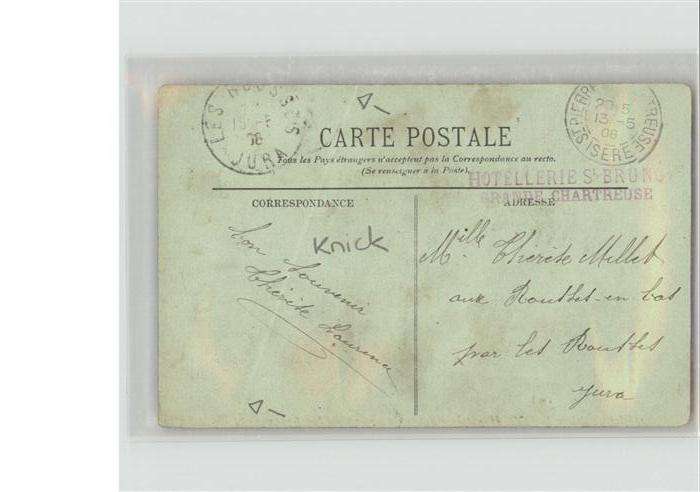 LES ROUSSES
JURA
CARTE POSTALE
Tous les Pays étrangers n'acceptent pas la Correspondance au recto.
(Se renseigner à la Poste).
ST PIERRE CHARTREUSE
13-5
06
ISÈRE
HOTELLERIE St BRUNO
GRANDE CHARTREUSE
CORRESPONDANCE
ADRESSE
Knick
Bon Souvenir
Thérèse
Mille Thérèse Millet
aux Rousses-en-bas
par les Rousses
Jura